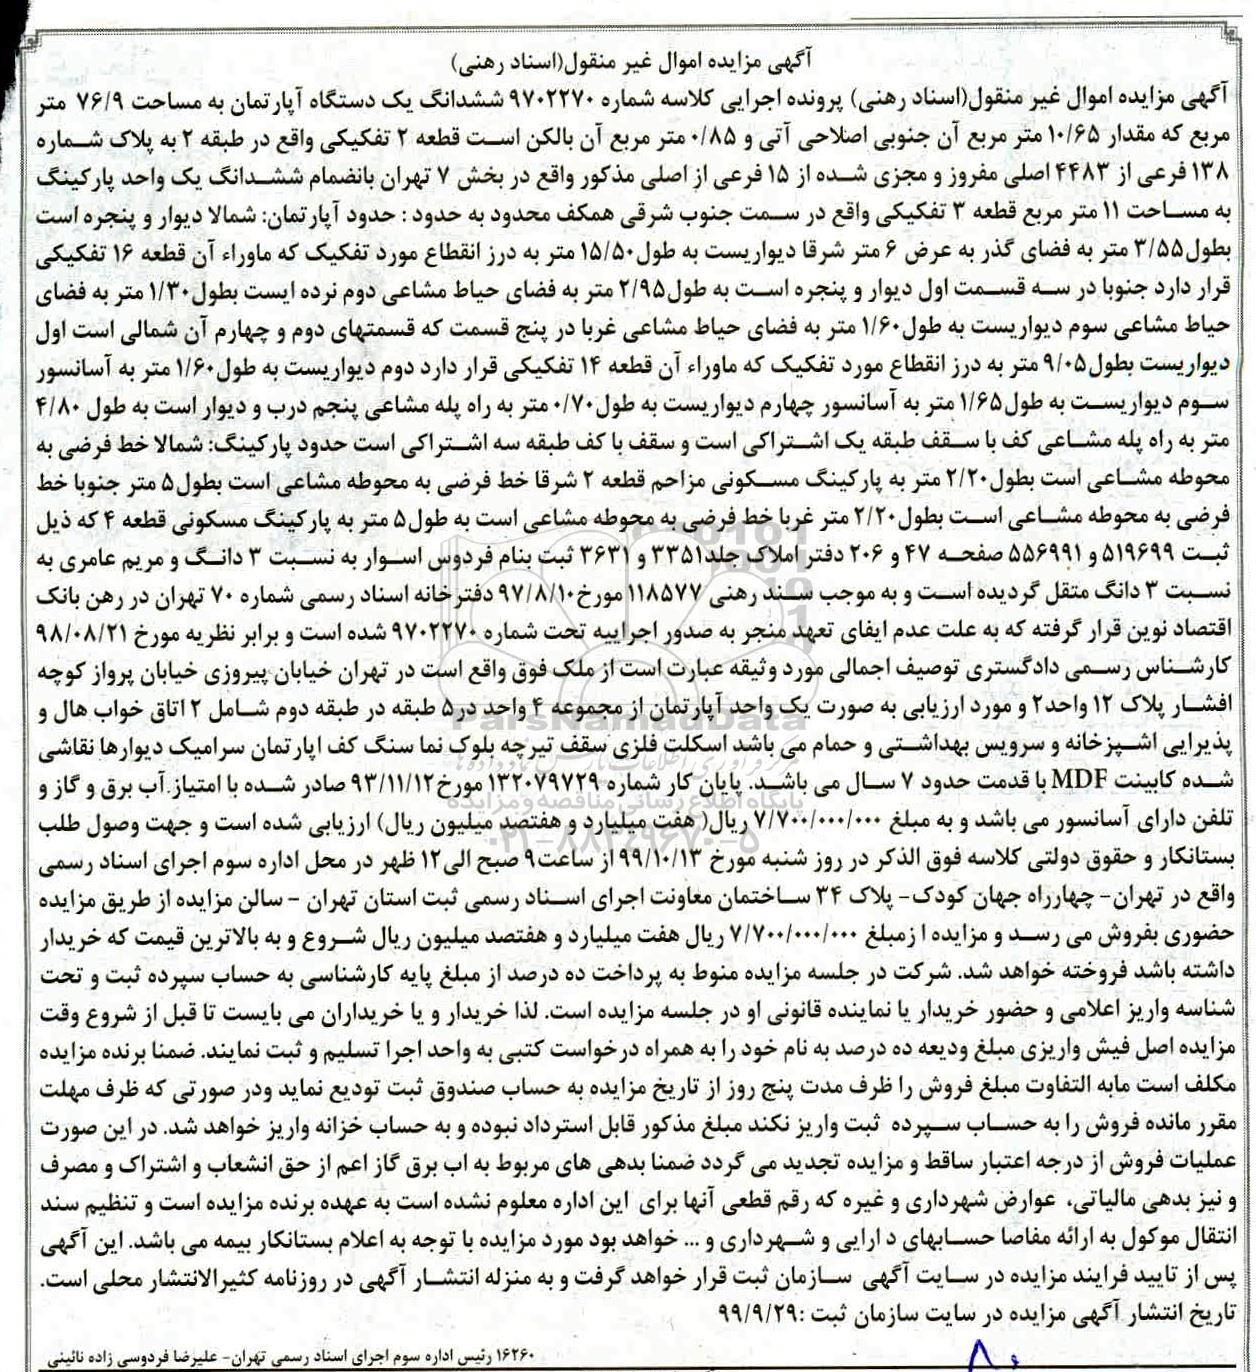 آگهی مزایده اموال غیر منقول(اسناد رهنی)
آگهی مزایده اموال غیر منقول(اسناد رهنی) پرونده اجرایی کلاسه شماره ۹۷۰۲۲۷۰ ششدانگ یک دستگاه آپارتمان به مساحت ۷۶/۹ متر
مربع که مقدار ۱۰/۶۵ متر مربع آن جنوبی اصلاحی آتی و ۰/۸۵ متر مربع آن بالکن است قطعه ۲ تفکیکی واقع در طبقه ۲ به پلاک شماره
۱۳۸ فرعی از ۴۴۸۳ اصلی مفروز و مجزی شده از ۱۵ فرعی از اصلی مذکور واقع در بخش ۷ تهران بانضمام ششدانگ یک واحد پارکینگ
به مساحت ۱۱ متر مربع قطعه ۳ تفکیکی واقع در سمت جنوب شرقی همکف محدود به حدود : حدود آپارتمان: شمالا دیوار و پنجره است
بطول۳/۵۵ متر به فضای گذر به عرض ۶ متر شرقا دیواریست به طول۱۵/۵۰ متر به درز انقطاع مورد تفکیک که ماوراء آن قطعه ۱۶ تفکیکی
قرار دارد جنوبا در سه قسمت اول دیوار و پنجره است به طول۲/۹۵ متر به فضای حیاط مشاعی دوم نرده ایست بطول۱/۳۰ متر به فضای
حیاط مشاعی سوم دیواریست به طول۱/۶۰ متر به فضای حیاط مشاعی غربا در پنج قسمت که قسمتهای دوم و چهارم آن شمالی است اول
دیواریست بطول۹/۰۵ متر به درز انقطاع مورد تفکیک که ماوراء آن قطعه ۱۴ تفکیکی قرار دارد دوم دیواریست به طول۱/۶۰ متر به آسانسور
سوم دیواریست به طول۱/۶۵ متر به آسانسور چهارم دیواریست به طول۰/۷۰ متر به راه پله مشاعی پنجم درب و دیوار است به طول ۴/۸۰
متر به راه پله مشاعی کف با سقف طبقه یک اشتراکی است و سقف با کف طبقه سه اشتراکی است حدود پارکینگ: شمالا خط فرضی به
محوطه مشاعی است بطول۲/۲۰ متر به پارکینگ مسکونی مزاحم قطعه ۲ شرقا خط فرضی به محوطه مشاعی است بطول۵ متر جنوبا خط
فرضی به محوطه مشاعی است بطول۲/۲۰ متر غربا خط فرضی به محوطه مشاعی است به طول۵ متر به پارکینگ مسکونی قطعه ۴ که ذیل
ثبت ۵۱۹۶۹۹ و ۵۵۶۹۹۱ صفحه ۴۷ و ۲۰۶ دفتر املاک جلد۳۳۵۱ و ۳۶۳۱ ثبت بنام فردوس اسوار به نسبت ۳ دانگ و مریم عامری به
نسبت ۳ دانگ متقل گردیده است و به موجب سند رهنی ۱۱۸۵۷۷ مورخ۹۷/۸/۱۰ دفترخانه اسناد رسمی شماره ۷۰ تهران در رهن بانک
اقتصاد نوین قرار گرفته که به علت عدم ایفای تعهد منجر به صدور اجراییه تحت شماره ۹۷۰۲۲۷۰ شده است و برابر نظریه مورخ ۹۸/۰۸/۲۱
کارشناس رسمی دادگستری توصیف اجمالی مورد وثیقه عبارت است از ملک فوق واقع است در تهران خیابان پیروزی خیابان پرواز کوچه
افشار پلاک ۱۲ واحد۲ و مورد ارزیابی به صورت یک واحد آپارتمان از مجموعه ۴ واحد در۵ طبقه در طبقه دوم شامل ۲ اتاق خواب هال و
پذیرایی اشپزخانه و سرویس بهداشتی و حمام می باشد اسکلت فلزی سقف تیرچه بلوک نما سنگ کف اپارتمان سرامیک دیوارها نقاشی
شده کابینت MDF با قدمت حدود ۷ سال می باشد. پایان کار شماره ۱۳۲۰۷۹۷۲۹ مورخ۹۳/۱۱/۱۲ صادر شده با امتیاز آب برق و گاز و
تلفن دارای آسانسور می باشد و به مبلغ ۷/۷۰۰/۰۰۰/۰۰۰ ریال( هفت میلیارد و هفتصد میلیون ریال) ارزیابی شده است و جهت وصول طلب
بستانکار و حقوق دولتی کلاسه فوق الذکر در روز شنبه مورخ ۹۹/۱۰/۱۳ از ساعت۹ صبح الی۱۲ ظهر در محل اداره سوم اجرای اسناد رسمی
واقع در تهران- چهارراه جهان کودک- پلاک ۳۴ ساختمان معاونت اجرای اسناد رسمی ثبت استان تهران - سالن مزایده از طریق مزایده
حضوری بفروش می رسد و مزایده ا زمبلغ ۷/۷۰۰/۰۰۰/۰۰۰ ریال هفت میلیارد و هفتصد میلیون ریال شروع و به بالاترین قیمت که خریدار
داشته باشد فروخته خواهد شد. شرکت در جلسه مزایده منوط به پرداخت ده درصد از مبلغ پایه کارشناسی به حساب سپرده ثبت و تحت
شناسه واریز اعلامی و حضور خریدار یا نماینده قانونی او در جلسه مزایده است. لذا خریدار و یا خریداران می بایست تا قبل از شروع وقت
مزایده اصل فیش واریزی مبلغ ودیعه ده درصد به نام خود را به همراه درخواست کتبی به واحد اجرا تسلیم و ثبت نمایند. ضمنا برنده مزایده
مکلف است مابه التفاوت مبلغ فروش را ظرف مدت پنج روز از تاریخ مزایده به حساب صندوق ثبت تودیع نماید ودر صورتی که ظرف مهلت
مقرر مانده فروش را به حساب سپرده ثبت واریز نکند مبلغ مذکور قابل استرداد نبوده و به حساب خزانه واریز خواهد شد. در این صورت
عملیات فروش از درجه اعتبار ساقط و مزایده تجدید می گردد ضمنا بدهی های مربوط به اب برق گاز اعم از حق انشعاب و اشتراک و مصرف
و نیز بدهی مالیاتی، عوارض شهرداری و غیره که رقم قطعی آنها برای این اداره معلوم نشده است به عهده برنده مزایده است و تنظیم سند
انتقال موکول به ارائه مفاصا حسابهای د ارایی و شهرداری و ... خواهد بود مورد مزایده با توجه به اعلام بستانکار بیمه می باشد. این آگهی
پس از تایید فرایند مزایده در سایت آگهی سازمان ثبت قرار خواهد گرفت و به منزله انتشار آگهی در روزنامه کثیرالانتشار محلی است.
تاریخ انتشار آگهی مزایده در سایت سازمان ثبت :۹۹/۹/۲۹
۱۶۲۶۰ رئیس اداره سوم اجرای اسناد رسمی تهران- علیرضا فردوسی زاده نائینی
ParsNamadData
پایگاه اطلاع رسانی مناقصه و مزایده
۰۲۱-۸۸۳۴۹۶۷۰-۵